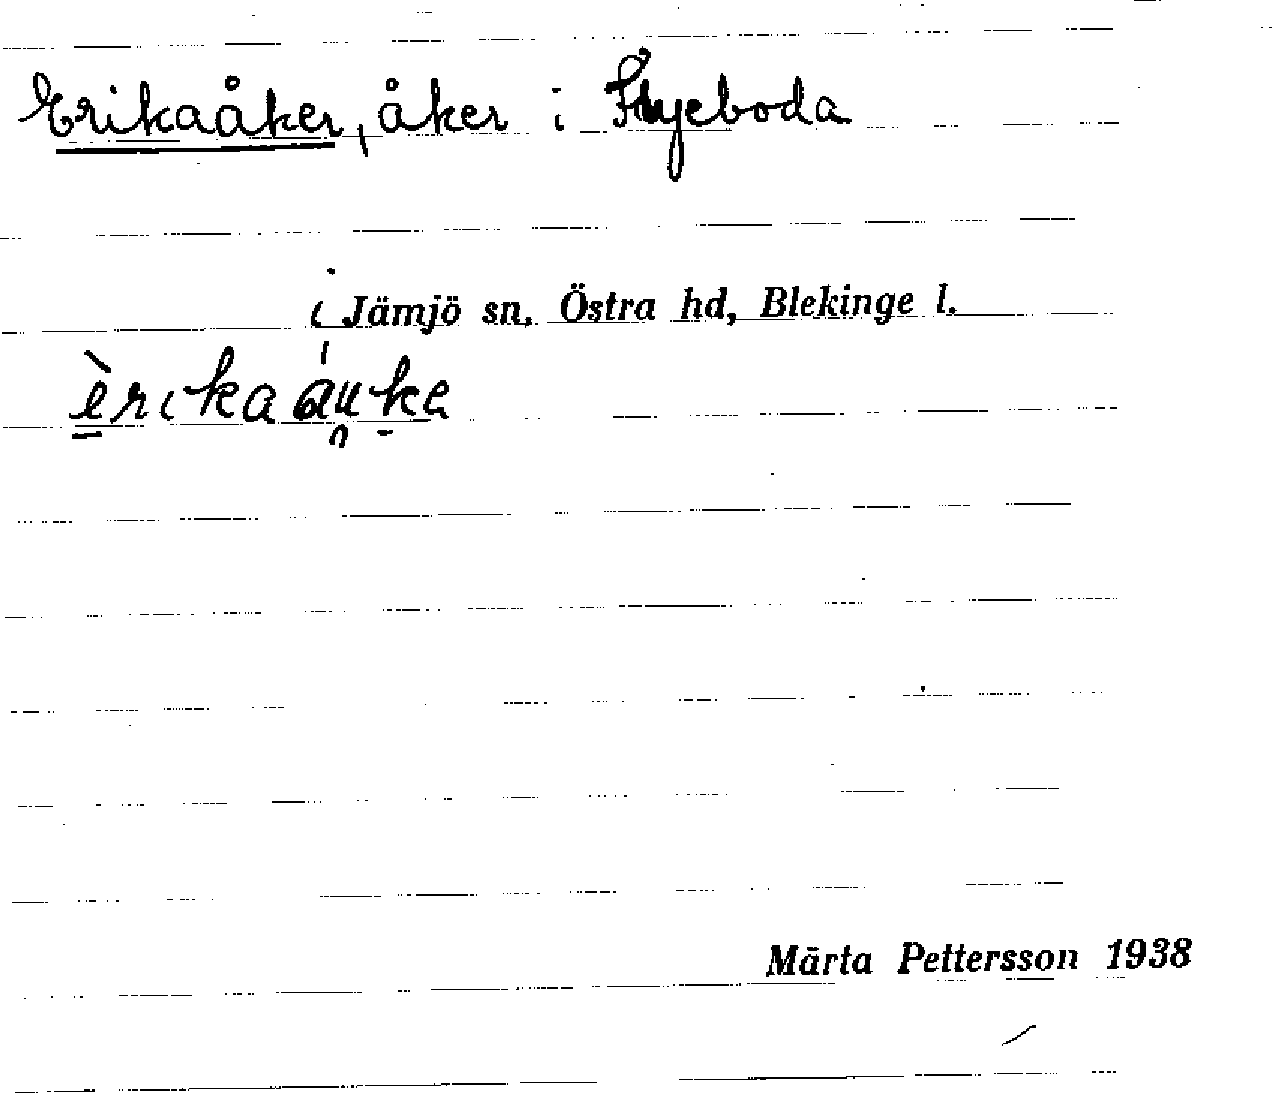 Erikaåker, åker i Flyeboda
i Jämjö sn, Östra hd, Blekinge l.
èrikaáu̯ka
Märta Pettersson 1938